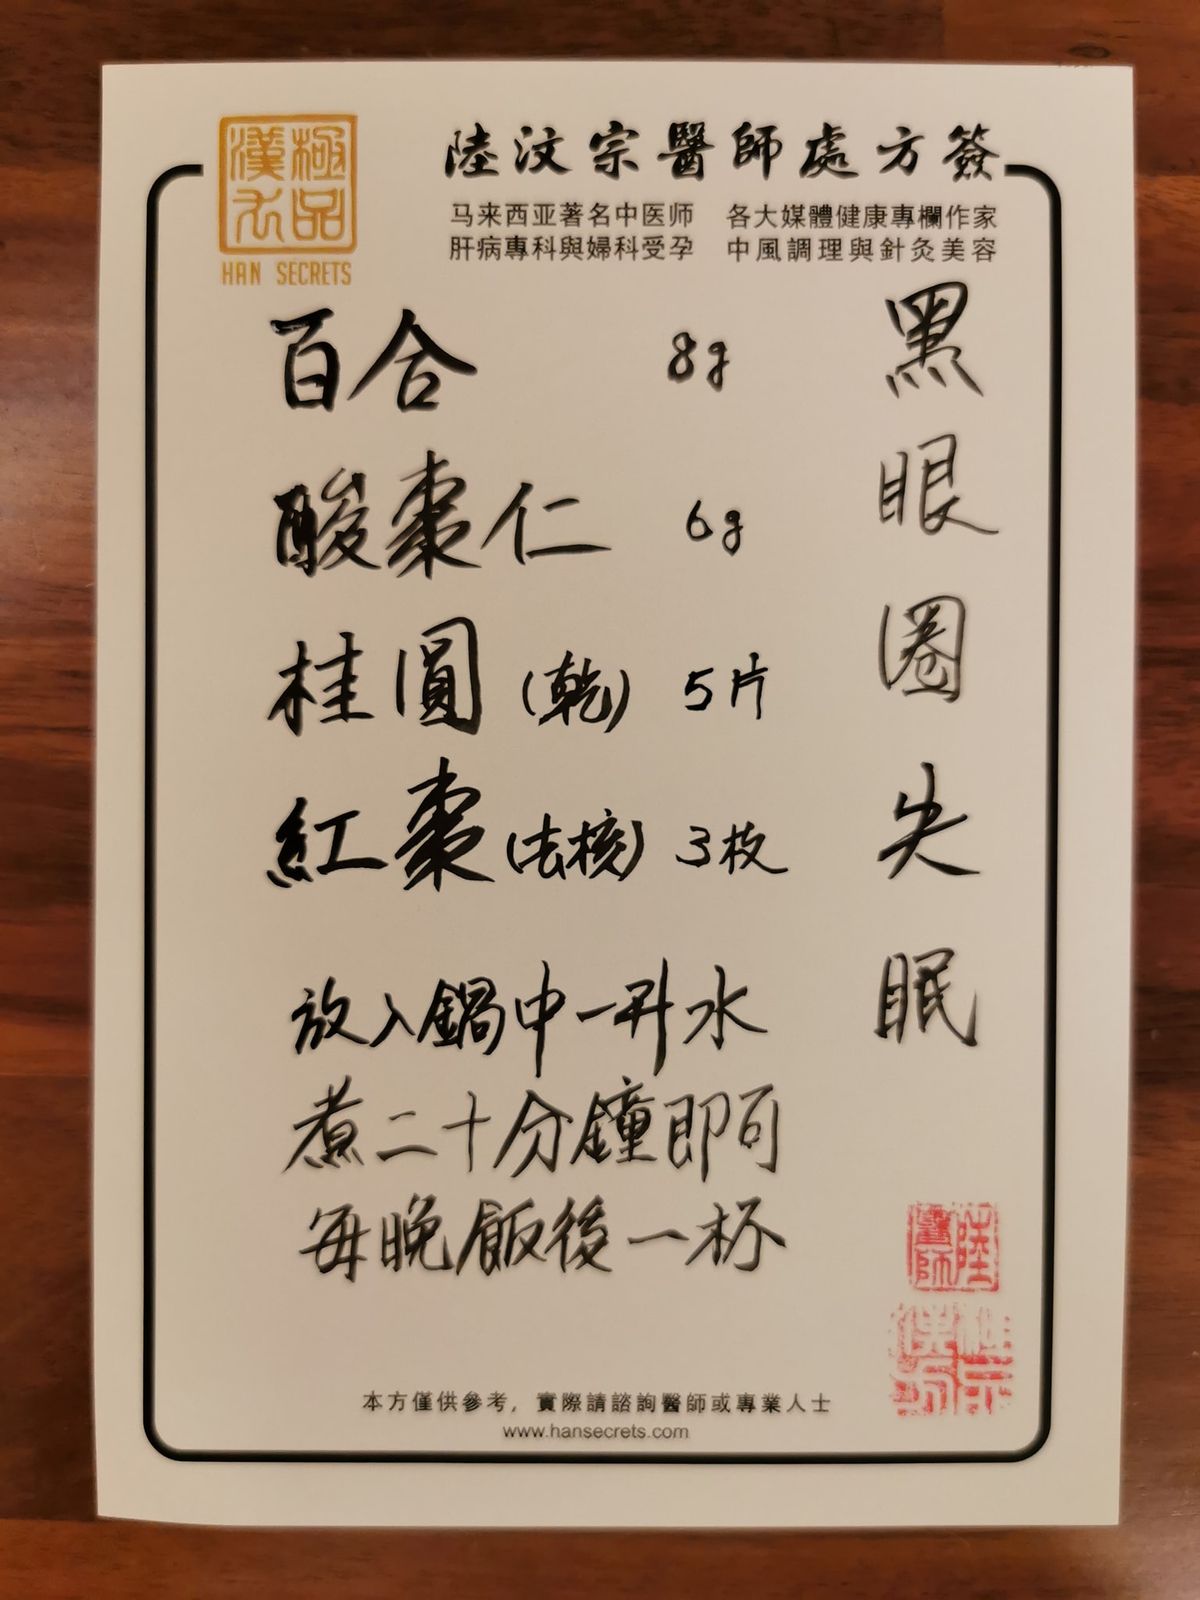 極品漢方
HAN SECRETS
陸汶宗醫師處方簽
马来西亚著名中医师 各大媒體健康專欄作家
肝病專科與婦科受孕 中風調理與針灸美容
黑眼圈失眠
百合 8g
酸棗仁 6g
桂圓(乾) 5片
紅棗(去核) 3枚
放入鍋中一升水
煮二十分鐘即可
每晚飯後一杯
陸醫師
本方僅供參考，實際請諮詢醫師或專業人士
www.hansecrets.com